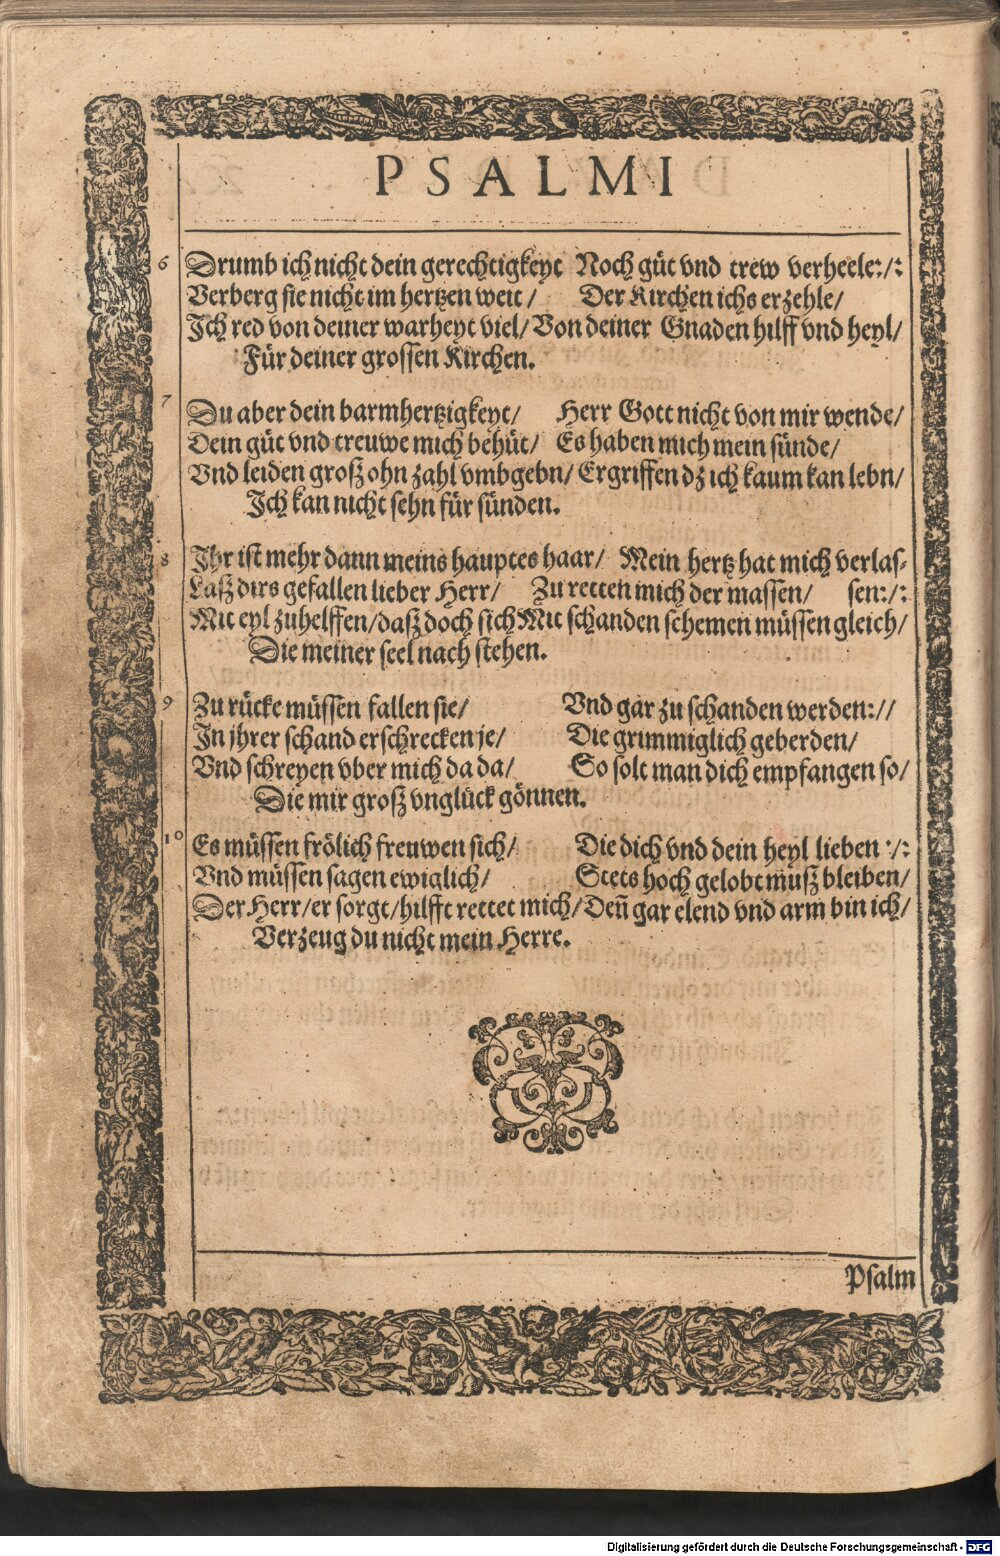 PSALMI
6 Drumb ich nicht dein gerechtigkeyt Noch güt vnd trew verheele:/:
Verberg sie nicht im hertzen weit / Der Kirchen ichs erzehle/
Ich red von deiner warheyt viel/ Von deiner Gnaden hilff vnd heyl/
Für deiner grossen Kirchen.
7 Du aber dein barmhertzigkeyt/ Herr Gott nicht von mir wende/
Dein güt vnd treuwe mich behüt/ Es haben mich mein sünde/
Vnd leiden groß ohn zahl vmbgebn/ Ergriffen dz ich kaum kan lebn/
Ich kan nicht sehn für sünden.
8 Ihr ist mehr dann meins hauptes haar/ Mein hertz hat mich verlas-
Laß dirs gefallen lieber Herr/ Zu retten mich der massen/ sen:/:
Mit eyl zuhelffen/ daß doch sich Mit schanden schemen müssen gleich/
Die meiner seel nach stehen.
9 Zu rücke müssen fallen sie/ Vnd gar zu schanden werden://
In jhrer schand erschrecken je/ Die grimmiglich geberden/
Vnd schreyen vber mich da da/ So solt man dich empfangen so/
Die mir groß vnglück gönnen.
10 Es müssen frölich freuwen sich/ Die dich vnd dein heyl lieben :/:
Vnd müssen sagen ewiglich/ Stets hoch gelobt muß bleiben/
Der Herr/ er sorgt/ hilfft rettet mich/ Deñ gar elend vnd arm bin ich/
Verzeug du nicht mein Herre.
Psalm
Digitalisierung gefördert durch die Deutsche Forschungsgemeinschaft - DFG